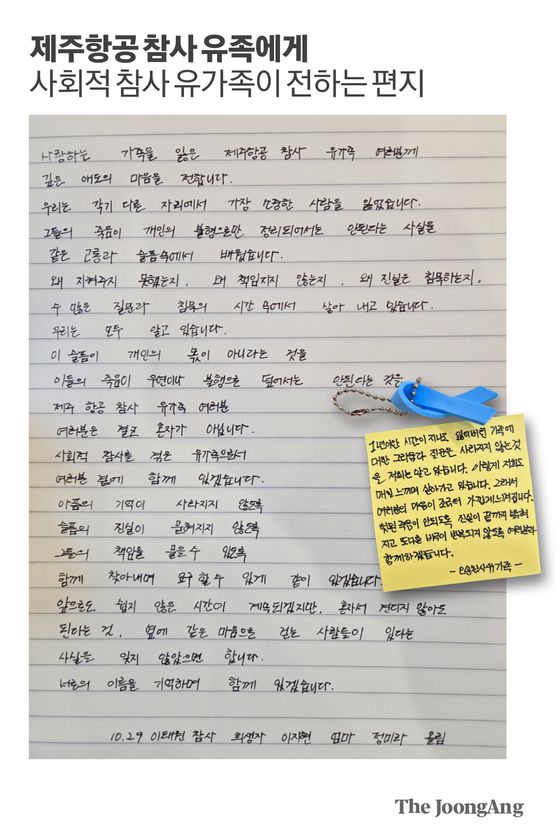 제주항공 참사 유족에게
사회적 참사 유가족이 전하는 편지
사랑하는 가족을 잃은 제주항공 참사 유가족 여러분께
깊은 애도의 마음을 전합니다.
우리는 각기 다른 자리에서 가장 소중한 사람을 잃었습니다.
그들의 죽음이 개인의 불행으로만 정리되어서는 안된다는 사실을
같은 고통과 슬픔속에서 배웠습니다.
왜 지켜주지 못했는지, 왜 책임지지 않는지, 왜 진실은 침묵하는지,
수 많은 질문과 침묵의 시간 속에서 살아 내고 있습니다.
우리는 모두 알고 있습니다.
이 슬픔이 개인의 몫이 아니라는 것을
이들의 죽음이 우연이나 불행으로 덮여서는 안된다는 것을
제주 항공 참사 유가족 여러분
여러분은 결코 혼자가 아닙니다.
사회적 참사를 겪은 유가족으로서
여러분 곁에 함께 있겠습니다.
아픔의 기억이 사라지지 않도록
슬픔의 진실이 묻혀지지 않도록
그들의 책임을 물을 수 있도록
함께 찾아내며 요구할 수 있게 같이 있겠습니다.
앞으로도 쉽지 않은 시간이 계속되겠지만, 혼자서 견디지 않아도
된다는 것, 옆에 같은 마음으로 걷는 사람들이 있다는
사실을 잊지 않았으면 합니다.
서로의 이름을 기억하며 함께 있겠습니다.
10.29 이태원 참사 희생자 이지현 엄마 정미라 올림
1년이란 시간이 지나도 잃어버린 가족에
대한 그리움과 질문은 사라지지 않는 것
을 저희는 알고 있습니다. 이렇게 저희도
매일 느끼며 살아가고 있습니다. 그래서
여러분의 마음이 조금더 가깝게 느껴집니다.
헛된 죽음이 안되도록 진실이 끝까지 밝혀
지고 또다른 비극이 반복되지 않도록 여러분과
함께하겠습니다.
- 오송참사유가족 -
The JoongAng